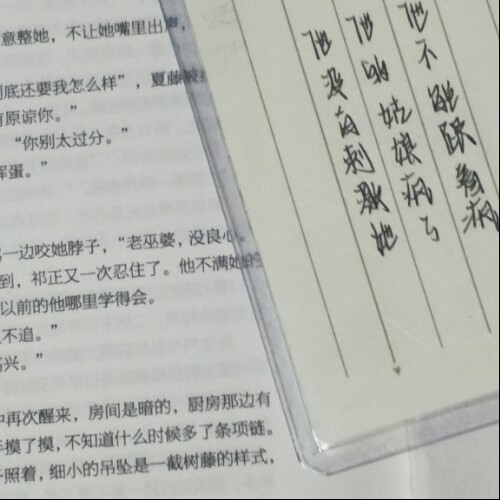 意整她，不让她嘴里出声，
到底还要我怎么样”，夏藤被
原谅你。”
“你别太过分。”
浑蛋。”
一边咬她脖子，“老巫婆，没良心。
到，祁正又一次忍住了。他不满她的
以前的他哪里学得会。
不追。”
高兴。”
中再次醒来，房间是暗的，厨房那边有
摸了摸，不知道什么时候多了条项链。
照着，细小的吊坠是一截树藤的样式，
他没有刺激她
他的姑娘病了
他不能跟着病